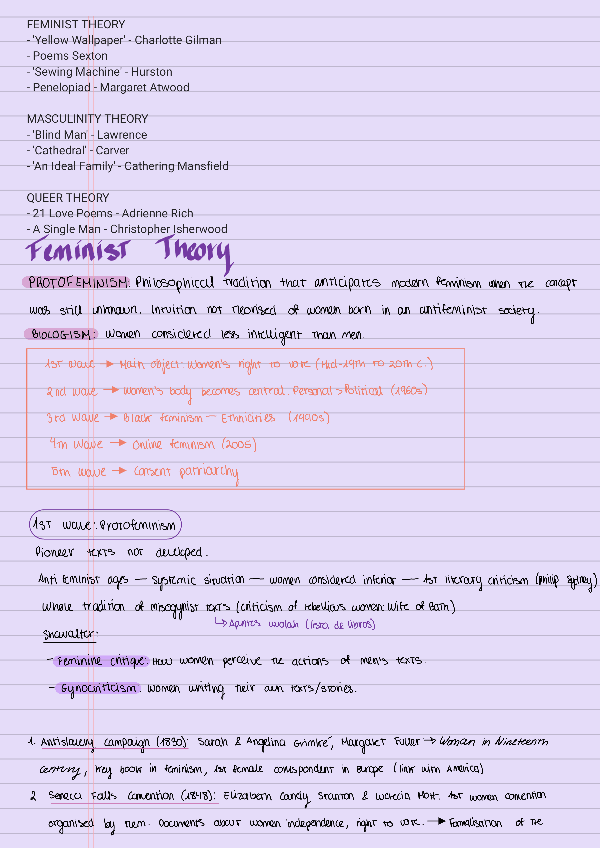 FEMINIST THEORY
- 'Yellow Wallpaper' - Charlotte Gilman
- Poems Sexton
- 'Sewing Machine' - Hurston
- Penelopiad - Margaret Atwood
MASCULINITY THEORY
- 'Blind Man' - Lawrence
- 'Cathedral' - Carver
- 'An Ideal Family' - Cathering Mansfield
QUEER THEORY
- 21 Love Poems - Adrienne Rich
- A Single Man - Christopher Isherwood
Feminist Theory
PROTOFEMINISM: Philosophical tradition that anticipates modern feminism when the concept
was still unknown. Intuition not theorised of women born in an antifeminist society.
BIOLOGISM: Women considered less intelligent than men.
1st wave → Main object: Women's right to vote (Mid-19th to 20th c.)
2nd wave → Women's body becomes central. Personal > Political (1960s)
3rd wave → Black feminism — Ethnicities (1990s)
4th wave → Online feminism (2005)
5th wave → Consent patriarchy
1st wave: Protofeminism
Pioneer texts not developed.
Anti feminist ages — systemic situation — women considered inferior — 1st literary criticism (Philip Sydney)
Whole tradition of misogynist texts (criticism of rebellious women: Wife of Bath)
↳ Apuntes (lista de libros)
Showalter:
- Feminine critique: How women perceive the actions of men's texts.
- Gynocriticism: women writing their own texts/stories.
1. Antislavery campaign (1830): Sarah & Angelina Grimké, Margaret Fuller → Woman in Nineteenth
Century, key book in feminism, 1st female correspondent in Europe (link with America)
2 Seneca Falls Convention (1848): Elizabeth Candy Stanton & Lucrecia Mott. 1st women convention
organised by them. Documents about women independence, right to vote. → Formalisation of the